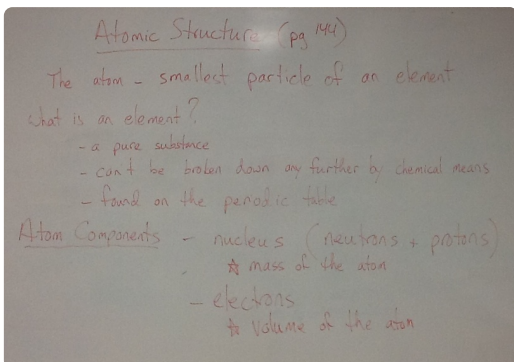 Atomic Structure (pg 144)
The atom - smallest particle of an element
what is an element?
- a pure substance
- can't be broken down any further by chemical means
- found on the periodic table
Atom Components - nucleus (neutrons + protons)
☆ mass of the atom
- electrons
☆ volume of the atom